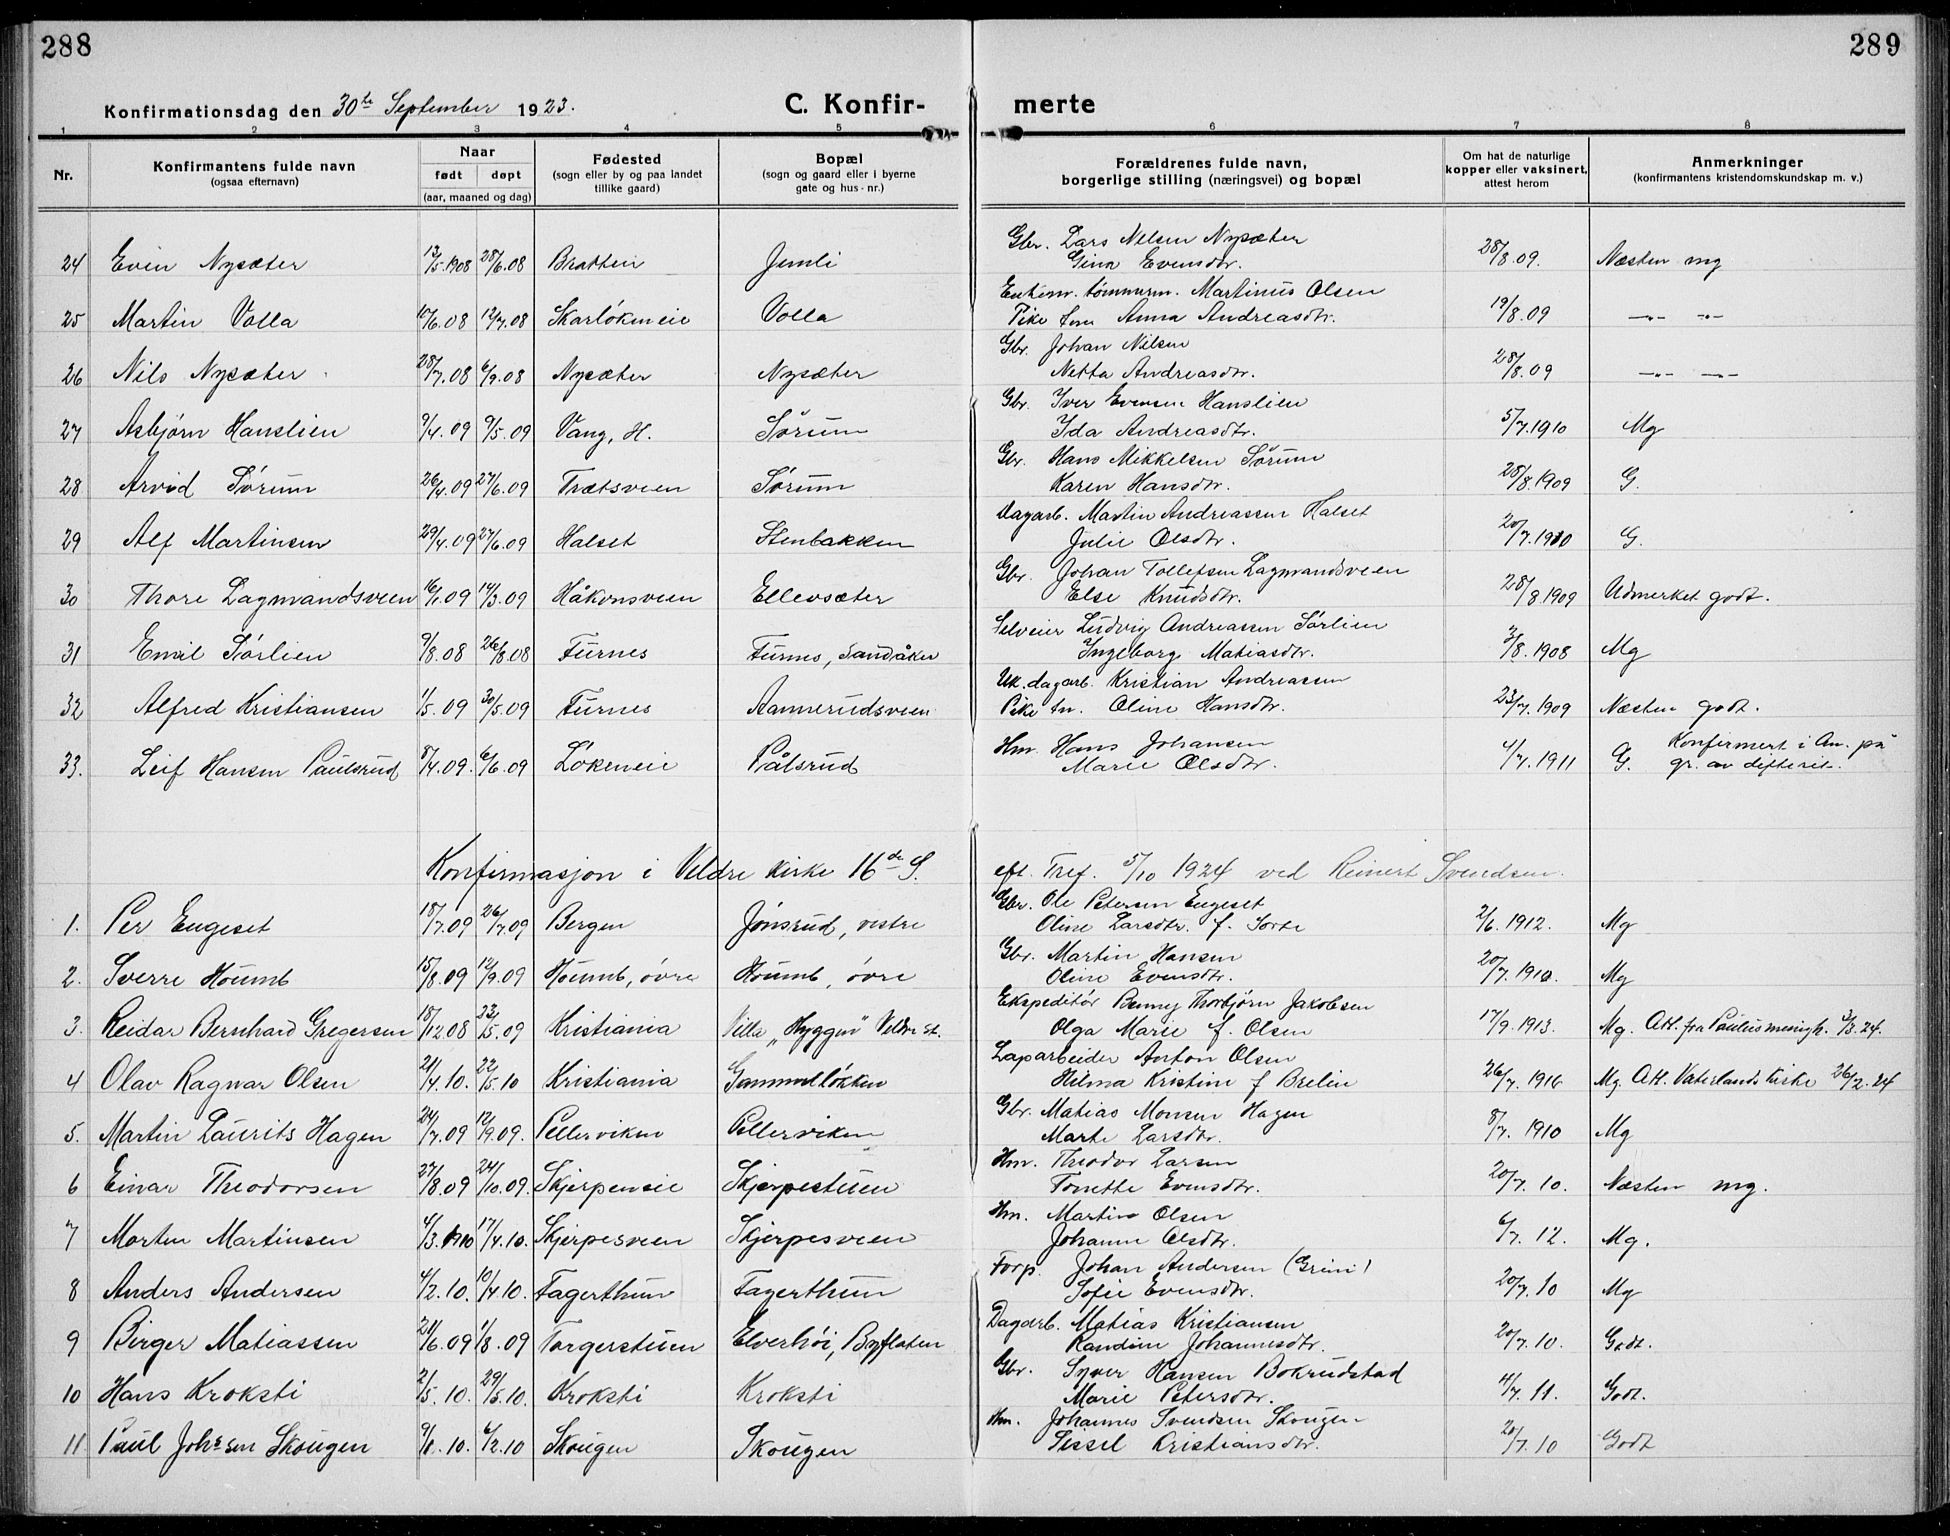 288
289
Konfirmationsdag den 30te September 1923.
C. Konfir- merte
1 2 3 4 5 6 7 8
Nr.
Konfirmantens fulde navn
(ogsaa efternavn)
Naar
født døpt
(aar, maaned og dag)
Fødested
(sogn eller by og paa landet
tillike gaard)
Bopæl
(sogn og gaard eller i byerne
gate og hus-nr.)
Forældrenes fulde navn,
borgerlige stilling (næringsvei) og bopæl
Om hat de naturlige
kopper eller vaksinert,
attest herom
Anmerkninger
(konfirmantens kristendomskundskap m. v.)
Gbr. Lars Nilsen Nysæter
24 Even Nysæter 13/5.1908 28/6.08 Bratten Jemli Gina Evensdtr. 28/8.09. Næsten mg
Enkem. tømmerm. Martinus Olsen
25 Martin Volla 10/6.08 12/7.08 Skarløkeneie Volla Pike fem Anna Andreasdtr. 19/8.09 —"— —"—
Gbr. Johan Nilsen
26 Nils Nysæter 28/7.08 6/9.08 Nysæter Nysæter Netta Andreasdtr. 28/8.09 —"— —"—
Gbr. Iver Evensen Hanslien
27 Asbjørn Hanslien 9/4.09 9/5.09 Vang, H. Sørum Ida Andreasdtr. 5/7.1910 Mg
Gbr. Hans Mikkelsen Sørum
28 Arvid Sørum 26/4.09 27/6.09 Trætsveen Sørum Karen Hansdtr. 28/8.1909 G.
Dagarb. Martin Andreassen Halset
29 Alf Martinsen 29/4.09 27/6.09 Halset Stenbakken Julie Olsdtr. 20/7.1910 G.
Gbr. Johan Tollefsen Lagmandsveen
30 Thore Lagmandsveen 16/1.09 14/3.09 Håkonsveen Ellevsæter Else Knudsdtr. 28/8.1909 Udmerket godt.
Selveier Ludvig Andreassen Sørlien
31 Emil Sørlien 9/8.08 26/8.08 Furnes Furnes, Sandåker Ingeborg Matiasdtr. 3/8.1908 Mg
Uk. dagarb. Kristian Andreassen
32 Alfred Kristiansen 1/5.09 30/5.09 Furnes Aannerudsveen Pike fn. Oline Hansdtr. 23/7.1909 Næsten godt.
Hm. Hans Johansen Konfirmert i An. på
33. Leif Hansen Paulsrud 8/4.09. 6/6.09 Løkeneie Pålsrud Marie Olsdtr. 4/7.1911 G. gr. av difterit.
Konfirmasjon i Veldre kirke 16de S. eft. Tref. 5/10 1924 ved Reinert Svendsen.
Gbr. Ole Petersen Engeset
1. Per Engeset 18/7.09 26/7.09 Bergen Jønsrud, vestre Oline Larsdtr. f. Sorte 2/6.1912. Mg
Gbr. Martin Hansen
2. Sverre Houmb 15/8.09 12/9.09 Houmb, övre Houmb, övre Oline Evensdtr. 20/7.1910. Mg
Ekspeditör Benny Thorbjörn Jakobsen
3. Reidar Bernhard Gregersen 18/12.08 23/5.09 Kristiania Villa „Hyggen" Veldre st. Olga Marie f. Olsen 17/9.1913. Mg. Att. fra Paulus menigh. 3/3.24.
Laparbeider Anton Olsen
4 Olav Ragnar Olsen 21/4.10. 22/5.10 Kristiania Gammelløkken Hilma Kristine f Brelin 26/7.1916 Mg. Att. Vaterlands kirke 26/2.24
Gbr. Matias Monsen Hagen
5. Martin Laurits Hagen 24/7.09 12/9.09. Pellerviken Pellerviken Marte Larsdtr. 8/7.1910 Mg
Hm. Theodor Larsen
6 Einar Theodorsen 27/8.09 24/10.09. Skjerpeneie Skjerpestuen Tonette Evensdtr. 20/7.10. Næsten mg.
Hm. Martin Olsen
7 Morten Martinsen 4/3.1910 17/4.10. Skjerpesveen Skjerpesveen Johanne Olsdtr. 6/7.12. Mg.
Forp. Johan Andersen (Grini)
8 Anders Andersen 4/2.10. 10/4.10. Fagerthun Fagerthun Sofie Evensdtr. 20/7.10 Mg
Dagarb. Matias Kristiansen
9 Birger Matiassen 21/6.09 1/8.09 Torgerstuen Elverhöi, Byflaten Randine Johannesdtr. 20/7.10. Godt.
Gbr. Syver Hansen Bokrudstad
10 Hans Kroksti 2/5.10. 29/5.10. Kroksti Kroksti Marie Petersdtr. 4/7.11. Godt.
Hm. Johannes Svendsen Skougen
11 Paul Johssen Skougen 9/1.10. 6/2.10 Skougen Skougen Sissel Kristiansdtr. 20/7.10 Godt